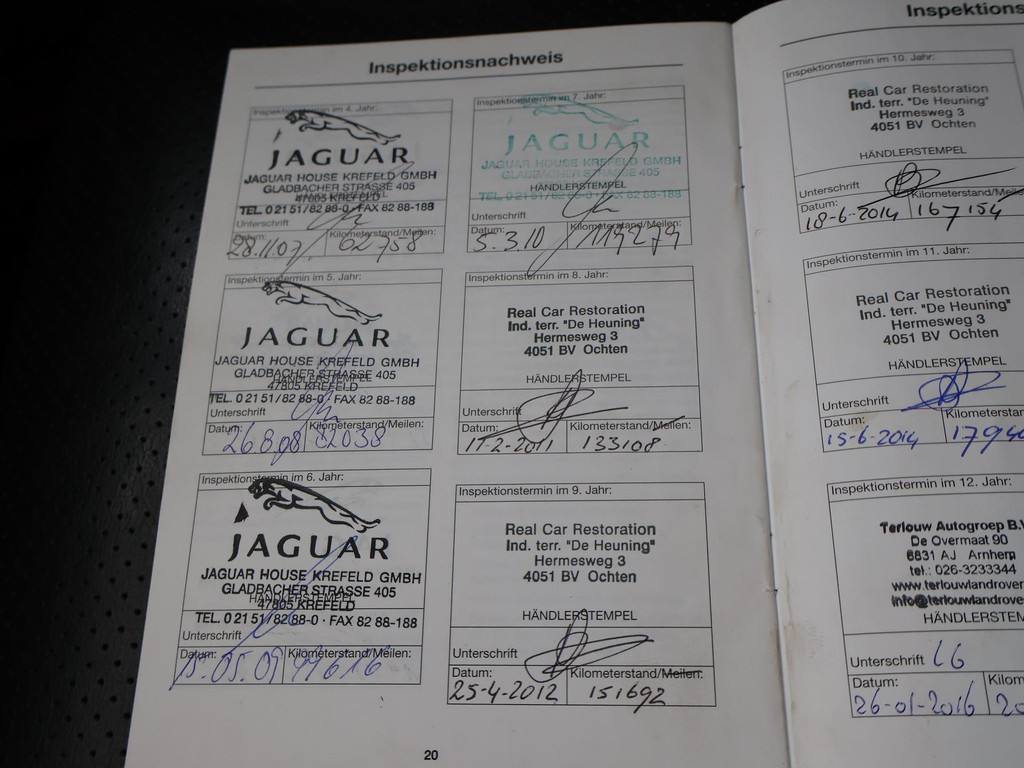 Inspektionsnachweis
Inspektionstermin im 4. Jahr:
JAGUAR
JAGUAR HOUSE KREFELD GMBH
GLADBACHER STRASSE 405
47805 KREFELD
HÄNDLERSTEMPEL
TEL. 0 21 51/82 88-0 · FAX 82 88-188
Unterschrift
Datum: Kilometerstand/Meilen:
28.11.07. 62758
Inspektionstermin im 5. Jahr:
JAGUAR
JAGUAR HOUSE KREFELD GMBH
GLADBACHER STRASSE 405
HÄNDLERSTEMPEL
47805 KREFELD
TEL. 0 21 51/82 88-0 · FAX 82 88-188
Unterschrift
Datum: Kilometerstand/Meilen:
26.8.08 82038
Inspektionstermin im 6. Jahr:
JAGUAR
JAGUAR HOUSE KREFELD GMBH
GLADBACHER STRASSE 405
HÄNDLERSTEMPEL
47805 KREFELD
TEL. 0 21 51/82 88-0 · FAX 82 88-188
Unterschrift
Datum: Kilometerstand/Meilen:
15.05.09 99616
Inspektionstermin im 7. Jahr:
JAGUAR
JAGUAR HOUSE KREFELD GMBH
GLADBACHER STRASSE 405
HÄNDLERSTEMPEL
TEL. 0 21 51/82 88-0 · FAX 82 88-188
Unterschrift
Datum: Kilometerstand/Meilen:
5.3.10 119279
Inspektionstermin im 8. Jahr:
Real Car Restoration
Ind. terr. "De Heuning"
Hermesweg 3
4051 BV Ochten
HÄNDLERSTEMPEL
Unterschrift
Datum: Kilometerstand/Meilen:
17-2-2011 133108
Inspektionstermin im 9. Jahr:
Real Car Restoration
Ind. terr. "De Heuning"
Hermesweg 3
4051 BV Ochten
HÄNDLERSTEMPEL
Unterschrift
Datum: Kilometerstand/Meilen:
25-4-2012 151692
20
Inspektions
Inspektionstermin im 10. Jahr:
Real Car Restoration
Ind. terr. "De Heuning"
Hermesweg 3
4051 BV Ochten
HÄNDLERSTEMPEL
Unterschrift
Datum: Kilometerstand/Meile
18-6-2014 167154
Inspektionstermin im 11. Jahr:
Real Car Restoration
Ind. terr. "De Heuning"
Hermesweg 3
4051 BV Ochten
HÄNDLERSTEMPEL
Unterschrift
Datum: Kilometerstan
15-6-2014 1794
Inspektionstermin im 12. Jahr:
Terlouw Autogroep B.V
De Overmaat 90
6831 AJ Arnhem
tel.: 026-3233344
www.terlouwlandrove
info@terlouwlandrove
HÄNDLERSTEM
Unterschrift
Datum: Kilom
26-01-2016 20